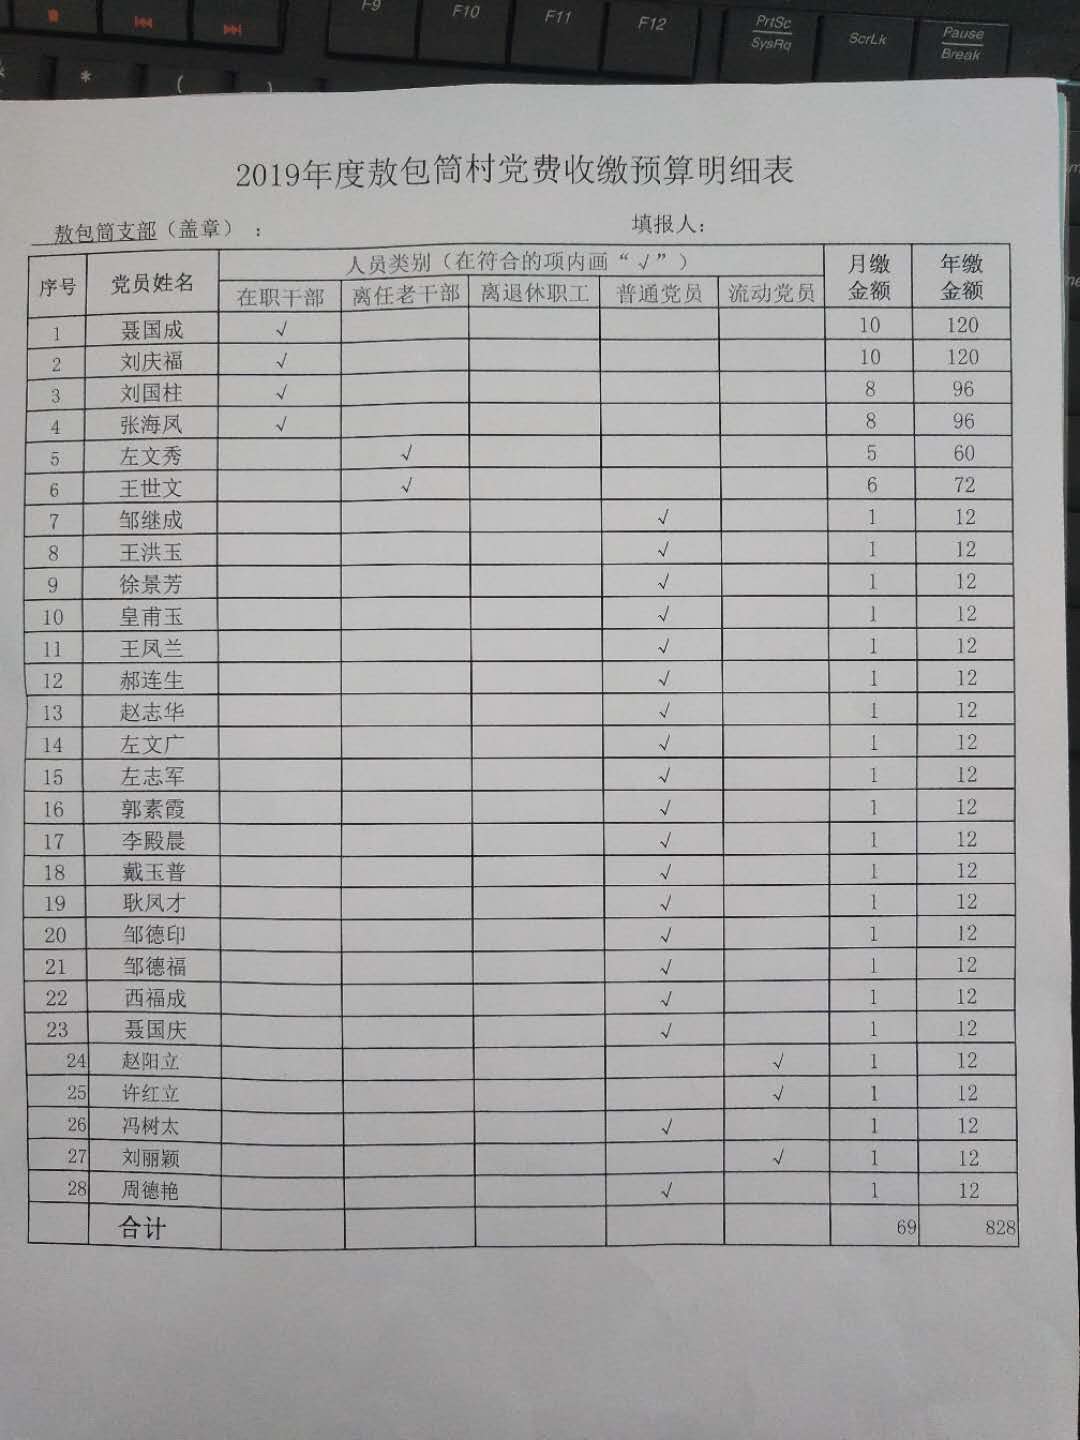 F9 F10 F11 F12 PrtSc SysRq ScrLk Pause Break
* ( )
2019年度敖包筒村党费收缴预算明细表
敖包筒支部（盖章）： 填报人：
序号 党员姓名 人员类别（在符合的项内画“√”） 月缴金额 年缴金额
在职干部 离任老干部 离退休职工 普通党员 流动党员
1 聂国成 √ 10 120
2 刘庆福 √ 10 120
3 刘国柱 √ 8 96
4 张海凤 √ 8 96
5 左文秀 √ 5 60
6 王世文 √ 6 72
7 邹继成 √ 1 12
8 王洪玉 √ 1 12
9 徐景芳 √ 1 12
10 皇甫玉 √ 1 12
11 王凤兰 √ 1 12
12 郝连生 √ 1 12
13 赵志华 √ 1 12
14 左文广 √ 1 12
15 左志军 √ 1 12
16 郭素霞 √ 1 12
17 李殿晨 √ 1 12
18 戴玉普 √ 1 12
19 耿凤才 √ 1 12
20 邹德印 √ 1 12
21 邹德福 √ 1 12
22 西福成 √ 1 12
23 聂国庆 √ 1 12
24 赵阳立 √ 1 12
25 许红立 √ 1 12
26 冯树太 √ 1 12
27 刘丽颖 √ 1 12
28 周德艳 √ 1 12
合计 69 828